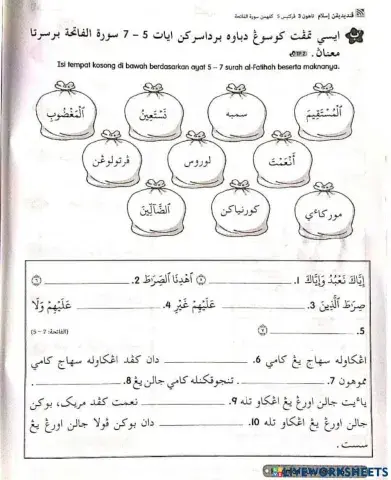 ڤنديديقن إسلام تاهون 3
ايسي تمڤت كوسوڠ دباوه برداسركن ايات 5 – 7 سورة الفاتحة برسرتا
معنان.
Isi tempat kosong di bawah berdasarkan ayat 5 – 7 surah al-Fatihah beserta maknanya.
الْمُسْتَقِيمَ سمبه نَسْتَعِينُ الْمَغْضُوبِ
أَنْعَمْتَ لوروس ڤرتولوڠن
موركاءي كورنياكن الضَّالِّينَ
إِيَّاكَ نَعْبُدُ وَإِيَّاكَ .1 ٥ اهْدِنَا الصِّرَاطَ .2 ٦
صِرَاطَ الَّذِينَ .3 عَلَيْهِمْ غَيْرِ .4 عَلَيْهِمْ وَلَا
.5 ٧ (الفاتحة: 5 – 7)
اڠكاوله سهاج يڠ كامي .6 دان كڤد اڠكاوله سهاج كامي
موهون .7 تنجوقكنله كامي جالن يڠ .8
يائيت جالن اورڠ يڠ اڠكاو تله .9 نعمت كڤد مريك، بوكن
جالن اورڠ يڠ اڠكاو تله .10 دان بوكن ڤولا جالن اورڠ يڠ
سست.
LIVEWORKSHEETS